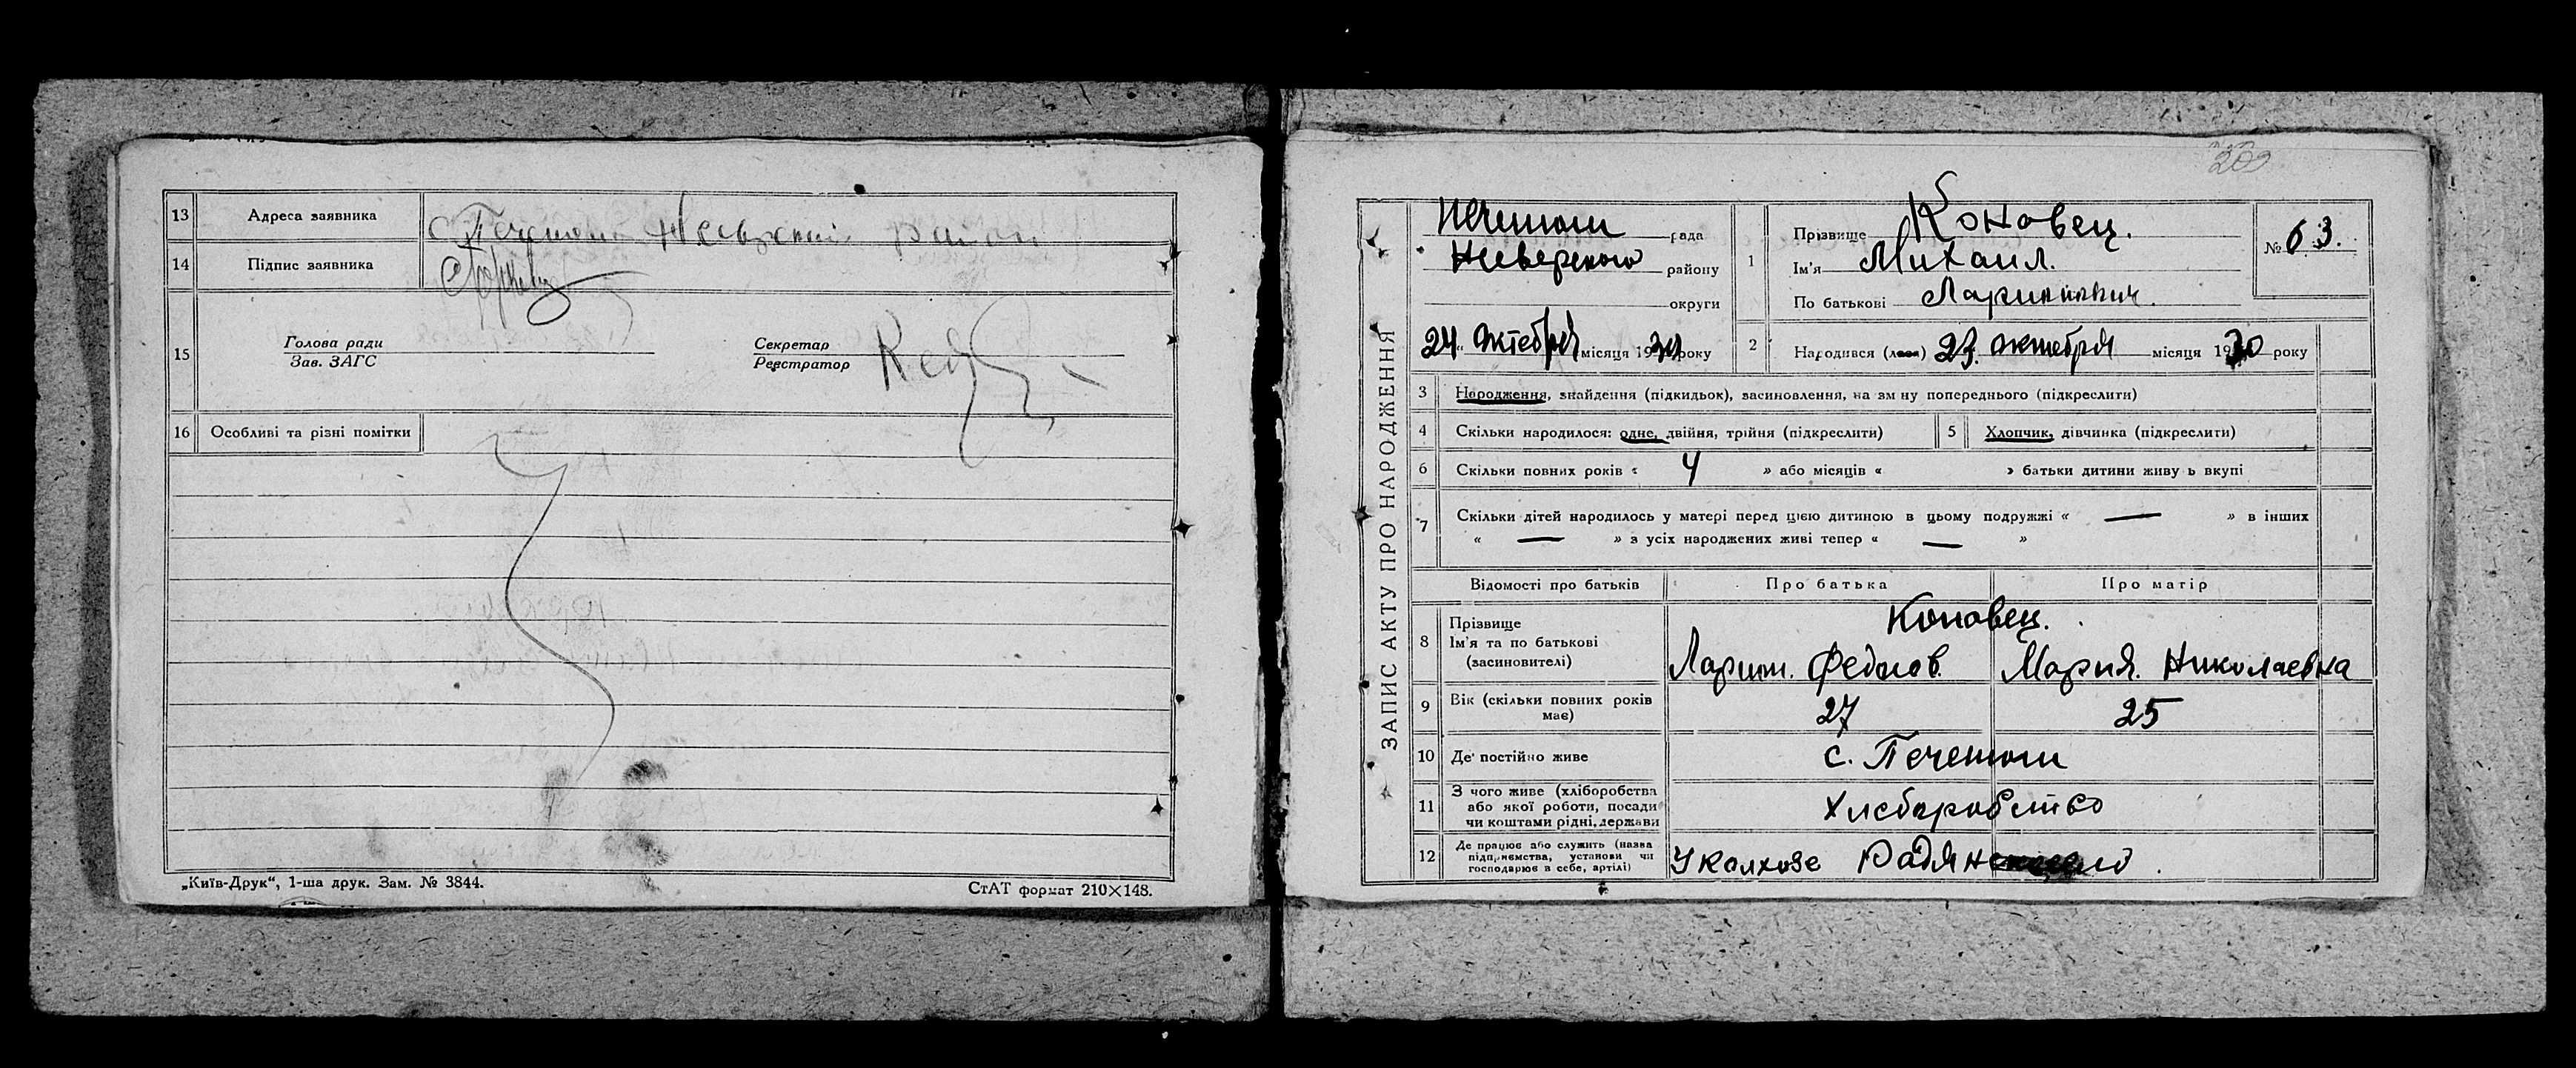 13 Адреса заявника с Печенюги
14 Підпис заявника
15 Голова ради Секретар
Зав. ЗАГС Реєстратор
16 Особливі та різні помітки
„Київ-Друк“, 1-ша друк. Зам. № 3844. СтАТ формат 210×148.
209
ЗАПИС АКТУ ПРО НАРОДЖЕННЯ
рада
району
округи
24 октебря місяця 19 року
№ 63.
1 Прізвище Коновец.
Ім'я Михаил.
По батькові Ларионович.
2 Народився (лася) 23. октебря місяця 1930 року
3 Народження, знайдення (підкидьок), засиновлення, на зміну попереднього (підкреслити)
4 Скільки народилося: одне, двійня, трійня (підкреслити) 5 Хлопчик, дівчинка (підкреслити)
6 Скільки повних років « 4 » або місяців « » батьки дитини живуть вкупі
7 Скільки дітей народилось у матері перед цією дитиною в цьому подружжі « — » в інших
« — » з усіх народжених живі тепер « — »
Відомості про батьків Про батька Про матір
8 Прізвище Коновец.
Ім'я та по батькові
(засиновителі) Мария. Николаевна
9 Вік (скільки повних років має) 27 25
10 Де постійно живе с. Печенюги
11 З чого живе (хліборобства
або якої роботи, посади
чи коштами рідні, держави Хлеборобство
12 Де працює або служить (назва
підприємства, установи чи
господарює в себе, артілі) У колхозе